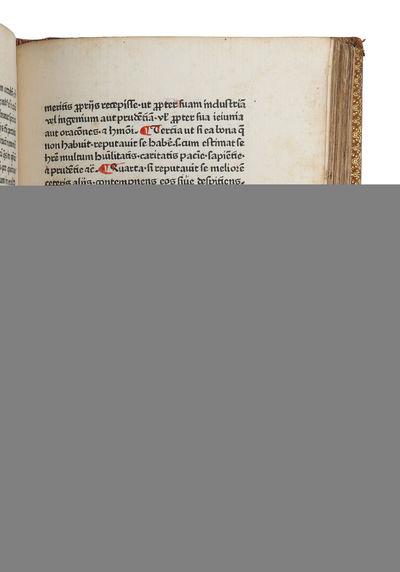 meritis ꝓprijs recepisse·ut ꝓpter suam industriā
vel ingenium aut prudētiā·vl̓ ꝓpter sua ieiunia
aut oracōnes·⁊ hm̄oi·¶Tercia ut si ea bona q̄
non habuit·reputauit se habē·Cum estimat se
hr̄e multum hūilitatis·caritatis paciē·sapiētie·
⁊ prudētie ⁊c̄·¶Quarta·si reputauit se meliorē
ceteris alijs·contempnens eos siue despiciens·